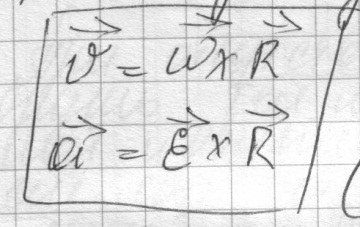 v⃗ = ω⃗ × R⃗
a⃗ = ε⃗ × R⃗